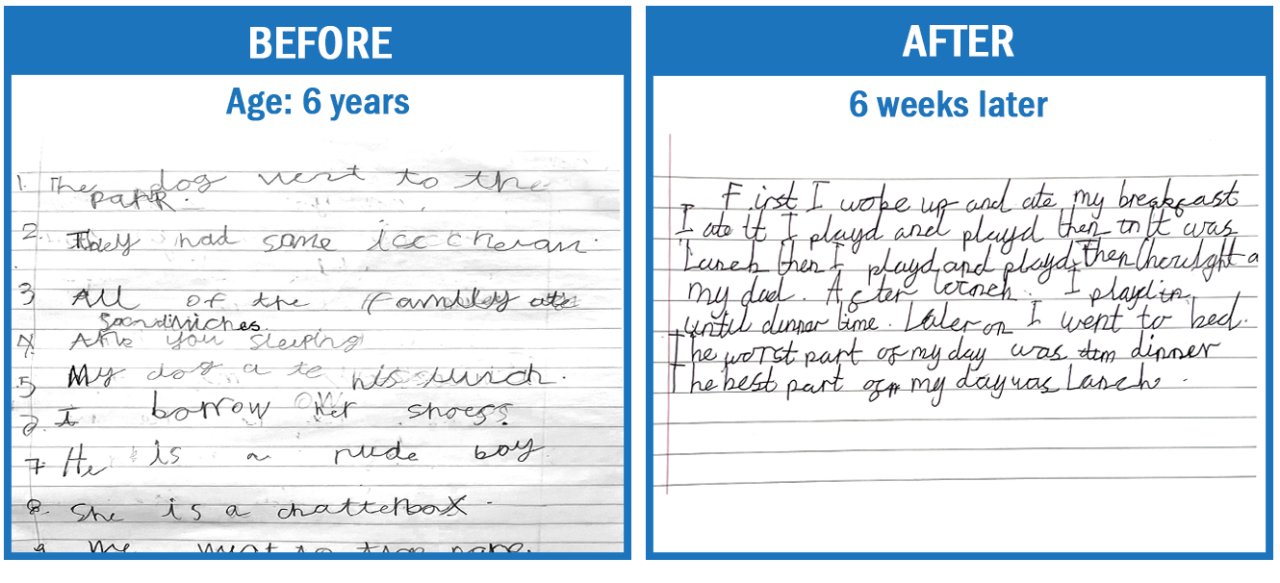 BEFORE
Age: 6 years
1. The dog went to the
park.
2. They had some icc cream.
3 All of the family ate
sandwiches.
4. Are you sleeping
5 My dog a te his lunch.
I borrow her shoes.
7. He is a rude boy
8. She is a chatterbox.
AFTER
6 weeks later
First I woke up and ate my breakfast
I ate it I playd and playd then it was
Lunch then I playd and playd. Then I
my dad. After lunch I playd
until dinner time. Later on I went to bed.
The worst part of my day was dinner
The best part of my day was Lunch.